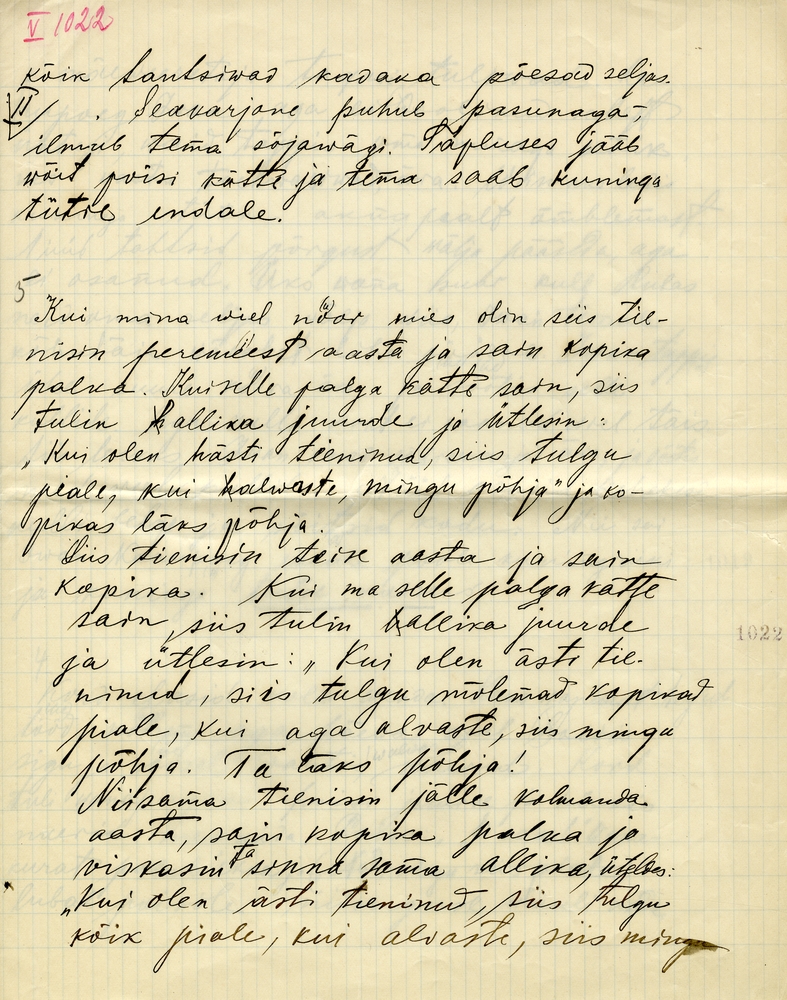 V 1022
kõik tantsiwad kadaka põesad seljas.
II/ . Seakarjane puhub pasunaga,
ilmub tema sõjawägi. Täpluses jääb
wõit poisi kätte ja tema saab kuninga
tütre endale.
5
"Kui mina wiel nöör mies olin siis tie-
nisin peremeest aasta ja sain kopika
palka. Kui selle palga kätte sain, siis
tulin hallika juurde ja ütlesin:
„Kui olen hästi tieninud, siis tulgu
piale, kui halwaste, mingu põhja" ja ko-
pikas läks põhja.
Siis tienisin teise aasta ja sain
kopika. Kui ma selle palga kätte
sain, siis tulin hallika juurde
ja ütlesin: „Kui olen ästi tie-
ninud, siis tulgu mõlemad kopikad
piale, kui aga alvaste, siis mingu
põhja. Ta läks põhja!
Niisama tienisin jälle kolmanda
aasta, sain kopika palka ja
viskasin ta sinna sama allika, üteldes:
„Kui olen ästi tieninud, siis tulgu
kõik piale, kui alvaste, siis mingu
1022